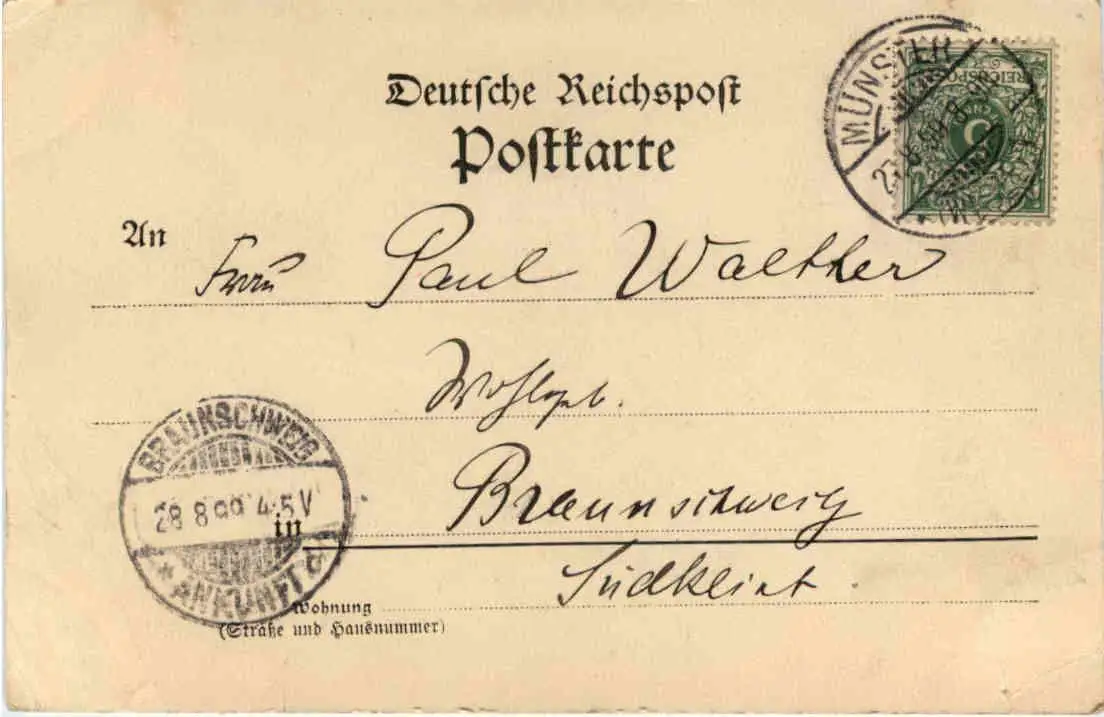 Deutsche Reichspost
Postkarte
MÜNSTER
27.8.99.8-9N
REICHSPOST
5
An
Frau Paul Walther
Wohlgeb.
BRAUNSCHWEIG
28 8 99 4-5V
* ANKUNFT
in Braunschweig
Südklint.
Wohnung
(Straße und Hausnummer)